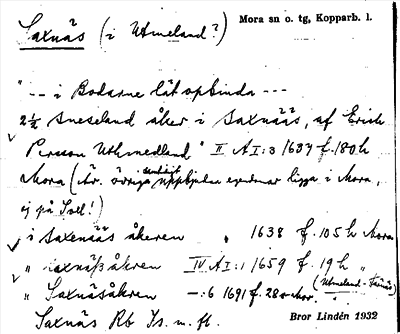 Saxnäs (i Utmeland?) Mora sn o. tg, Kopparb. l.
"--- i Bodarne lät opbinda ---
2½ sneseland åker i Saxnääs, af Erich
Persson Uthmedland" II AI:3 1637 f. 180 h
Mora (Är. övriga samtidigt uppbjudna egendomar ligga i Mora,
ej på Soll!)
i Saxenääs åkeren " 1638 f. 105 h Mora
" Saxnäßåkren IV AI:1 1659 f. 19 h "
" Saxnäsåkren —:6 1691 f. 28 v Mor. (Utmeland-
Saxnäs Rb Js. m. fl. Bror Lindén 1932